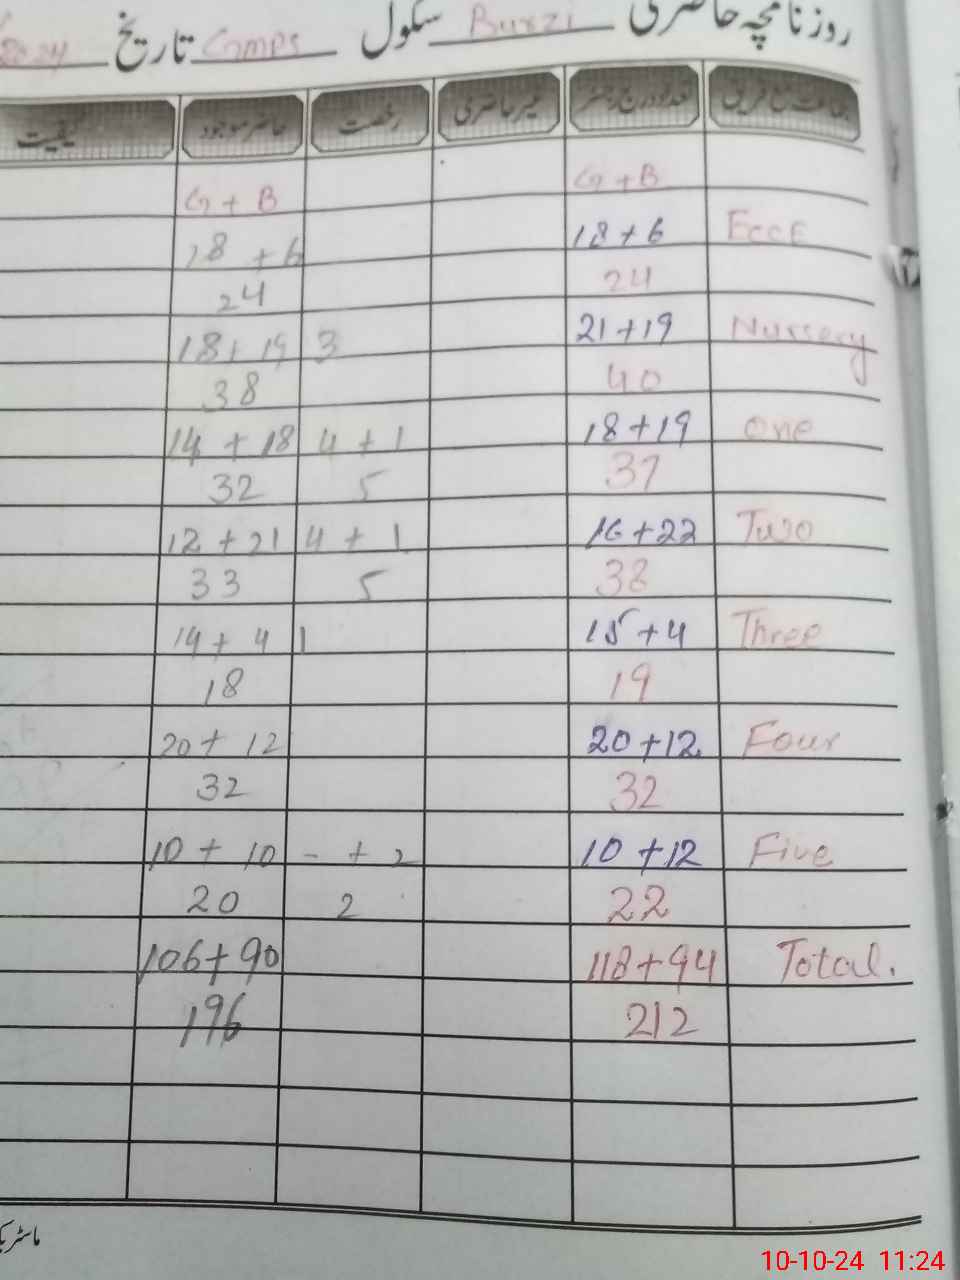 روزنامچہ حاضری سکول Burzi تاریخ Comps
جماعت مع فریق تعداد درج رجسٹر غیر حاضری رخصت حاضر موجود کیفیت
G + B G + B
Ecce 18 + 6 18 + 6
24 24
Nursery 21 + 19 3 18 + 19
40 38
One 18 + 19 4 + 1 14 + 18
37 5 32
Two 16 + 22 4 + 1 12 + 21
38 5 33
Three 15 + 4 1 14 + 4
19 18
Four 20 + 12 20 + 12
32 32
Five 10 + 12 - + 2 10 + 10
22 2 20
Total. 118 + 94 106 + 90
212 196
10-10-24 11:24